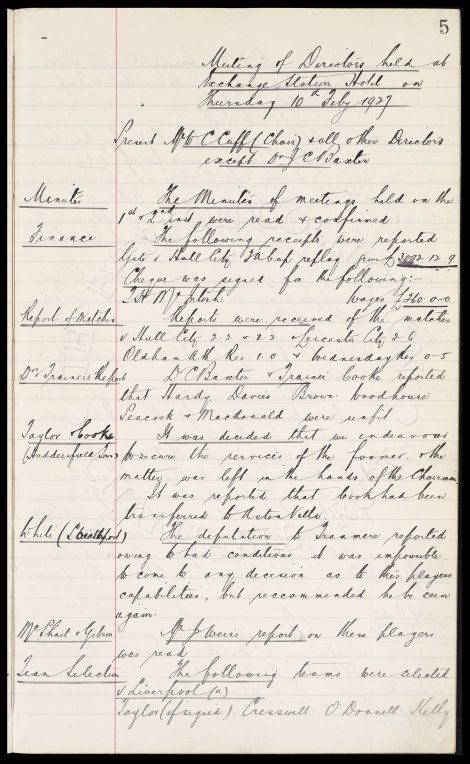 5
Meeting of Directors held at
Exchange Station Hotel on
Thursday 10th Feby 1927
Present Mr W C Cuff (Chair) & all other Directors
except Dr J C Baxter
Minutes The Minutes of meetings held on the
1st & 2nd inst were read & confirmed.
Finance The following receipts were reported
Gate v Hull City F A Cup replay from £3092-12-9
Cheque was signed for the following:-
T H McIntosh Wages £260-0-0
Report of Matches Reports were received of the matches
v Hull City 2.2 & 2.3 v Leicester City 2.6
Oldham Ath Res 1.0 & Wednesday Res 0-5
Dr & Trainers Report Dr C Baxter & Trainer Cooke reported
that Hardy Davies Brown Woodhouse
Peacock & Macdonald were unfit
Taylor & Cooke It was decided that we endeavour
(Huddersfield Town) to secure the services of the former & the
matter was left in the hands of the Chairman
It was reported that Cook had been
transferred to Aston Villa.
White (Southport) The deputation to Tranmere reported
owing to bad conditions it was impossible
to come to any decision as to this players
capabilities, but reccommended he be seen
again.
McPhail & Gibson Mr Weirs report on these players
was read
Team Selection The following teams were selected
v Liverpool (a)
Taylor (if signed) Cresswell. O'Donnell. Kelly